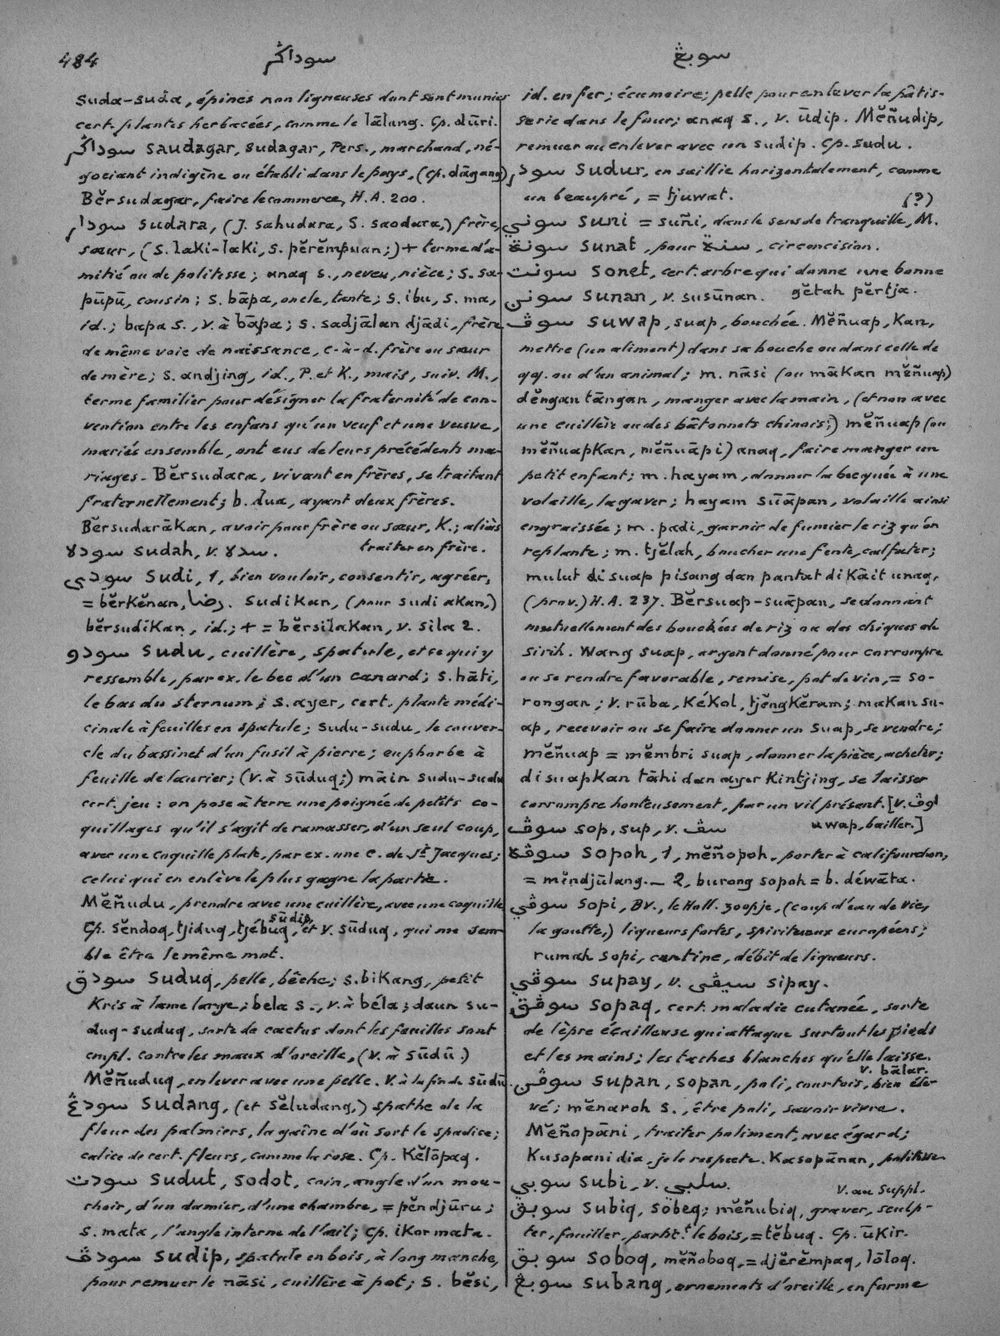 484
سوداڬر
سوبڠ
suda-suda, épines non ligneuses dont sont munies
cert. plantes herbacées, comme le lālang. Cp. dūri.
سوداڬر saudagar, sudagar, Pers., marchand, né-
gociant indigène ou établi dans le pays, (cp. dāgang)
Bĕrsudagar, faire le commerce, H.A. 200.
سودار sudara, (J. sahudara, S. saodara,) frère,
sœur, (s. laki-laki, s. pĕrĕmpuan;) + terme d'a-
mitié ou de politesse; anaq s., neveu, nièce; s. sa-
pūpū, cousin; s. bāpa, oncle, tante; s. ibu, s. ma,
id.; bapa s., v. à bāpa; s. sadjālan djādi, frère
de même voie de naissance, c-à-d. frère ou sœur
de mère; s. andjing, id., P. et K., mais, suiv. M.,
terme familier pour désigner la fraternité de con-
vention entre les enfans qu'un veuf et une veuve,
mariés ensemble, ont eus de leurs précédents ma-
riages. Bĕrsudara, vivant en frères, se traitant
fraternellement; b. dua, ayant deux frères.
Bĕrsudarākan, avoir pour frère ou sœur, K.; aliàs
traiter en frère.
سوده sudah, v. سده.
سودي sudi, 1, bien vouloir, consentir, agréer,
= bĕrkĕnan, رضا. sudikan, (pour sudi akan,)
bĕrsudikan, id.; + = bĕrsilakan, v. sila 2.
سودو sudu, cuillère, spatule, et ce qui y
ressemble, par ex. le bec d'un canard; s. hāti,
le bas du sternum; s. ayer, cert. plante médi-
cinale à feuilles en spatule; sudu-sudu, le couver-
cle du bassinet d'un fusil à pierre; euphorbe à
feuille de laurier; (v. à sūduq;) māin sudu-sudu
cert. jeu: on pose à terre une poignée de petits co-
quillages qu'il s'agit de ramasser, d'un seul coup,
avec une coquille plate, par ex. une c. de St Jacques;
celui qui en enlève le plus gagne la partie.
Mĕñudu, prendre avec une cuillère, avec une coquille
Cp. sĕndoq, tjiduq, tjébuq, sūdip, et v. sūduq, qui me sem-
ble être le même mot.
سودق suduq, pelle, bêche; s. bikang, petit
Kris à lame large; bela s., v. à béla; daun su-
duq-suduq, sorte de cactus dont les feuilles sont
empl. contre les maux d'oreille, (v. à sūdū.)
Mĕñuduq, enlever avec une pelle. v. à la fin de sūdu.
سودڠ sudang, (et sĕludang,) spathe de la
fleur des palmiers, la gaîne d'où sort le spadice;
calice de cert. fleurs, comme la rose. Cp. Kĕlōpaq.
سودت sudut, sodot, coin, angle d'un mou-
choir, d'un damier, d'une chambre, = pĕndjūru;
s. mata, l'angle interne de l'œil; Cp. ikor mata.
سودڤ sudip, spatule en bois, à long manche,
pour remuer le nāsi, cuillère à pot; s. bĕsi,
id. en fer; écumoire; pelle pour enlever la pâtis-
serie dans le four; anaq s., v. ūdip. Mĕñudip,
remuer ou enlever avec un sudip. Cp. sudu.
سودر sudur, en saillie horizontalement, comme
un beaupré, = tjuwat.
سوني suni = suñi, dans le sens de tranquille, M. (?)
سونة sunat, pour سنة, circoncision.
سونت sonet, cert. arbre qui donne une bonne
gĕtah pĕrtja.
سونن sunan, v. susūnan.
سوڤ suwap, suap, bouchée. Mĕñuap, Kan,
mettre (un aliment) dans sa bouche ou dans celle de
qq. ou d'un animal; m. nāsi (ou mākan mĕñuap)
dĕngan tāngan, manger avec la main, (et non avec
une cuillère ou des bâtonnets chinois;) mĕñuap (ou
mĕñuapkan, mĕñuāpi) anaq, faire manger un
petit enfant; m. hayam, donner la becquée à une
volaille, la gaver; hayam sūāpan, volaille ainsi
engraissée; m. padi, garnir de fumier le riz qu'on
replante; m. tjĕlah, boucher une fente, calfater;
mulut di suap pisang dan pantat di kāit unaq,
(prov.) H.A. 237. Bĕrsuap-suāpan, se donnant
mutuellement des bouchées de riz ou des chiques de
sirih. Wang suap, argent donné pour corrompre
ou se rendre favorable, remise, pot de vin, = so-
rongan; v. rūba, Kékol, tjĕngkĕram; makan su-
ap, recevoir ou se faire donner un suap, se vendre;
mĕñuap = mĕmbri suap, donner la pièce, acheter;
di suapkan tāhi dan ayer Kintjing, se laisser
corrompre honteusement, par un vil présent. [v. اوڤ
uwap, bailler.]
سوڤ sop, sup, v. سڤ
سوڤه sopoh, 1, mĕñopoh, porter à califourchon,
= mĕndjūlang. _ 2, burong sopoh = b. déwāta.
سوڤي sopi, BV., le Holl. zoopje, (coup d'eau de vie,
la goutte,) liqueurs fortes, spiritueux européens;
rumah sopi, cantine, débit de liqueurs.
سوڤي supay, v. سيڤي sipay.
سوڤق sopaq, cert. maladie cutanée, sorte
de lèpre écailleuse qui attaque surtout les pieds
et les mains; les taches blanches qu'elle laisse.
v. bālar.
سوڤن supan, sopan, poli, courtois, bien éle-
vé; mĕnaroh s., être poli, savoir vivre.
Mĕñopāni, traiter poliment, avec égard;
Kusopani dia, je le respecte. Kasopānan, politesse
سوبي subi, v. سلبي.
v. au suppl.
سوبق subiq, sobeq; mĕñubiq, graver, sculp-
ter, fouiller, partt. le bois, = tĕbuq. Cp. ūkir.
سوبق soboq, mĕñoboq, = djĕrĕmpaq, lōloq.
سوبڠ subang, ornements d'oreille, en forme